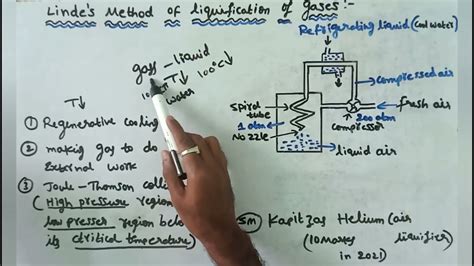 Linde's Method of liquification of gases:-
Refrigerating liquid (cool water)
gas - liquid
T↓ 100°C↓
water
T↓
compressed air
fresh air
200 atm
compressor
Spiral
tube
1 atm
Nozzle
liquid air
① Regenerative cooling
② making gas to do
External work
③ Joule-Thomson
(High pressure region
low presser region below
its critical temperature)
5M Kapitzas Helium (air
liquifier)
(10 Marks
in 2021)